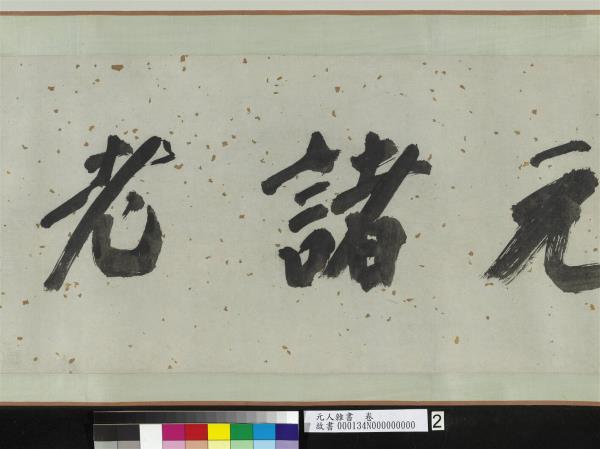 元諸老
元人雜書 卷
故書 000134N000000000
2